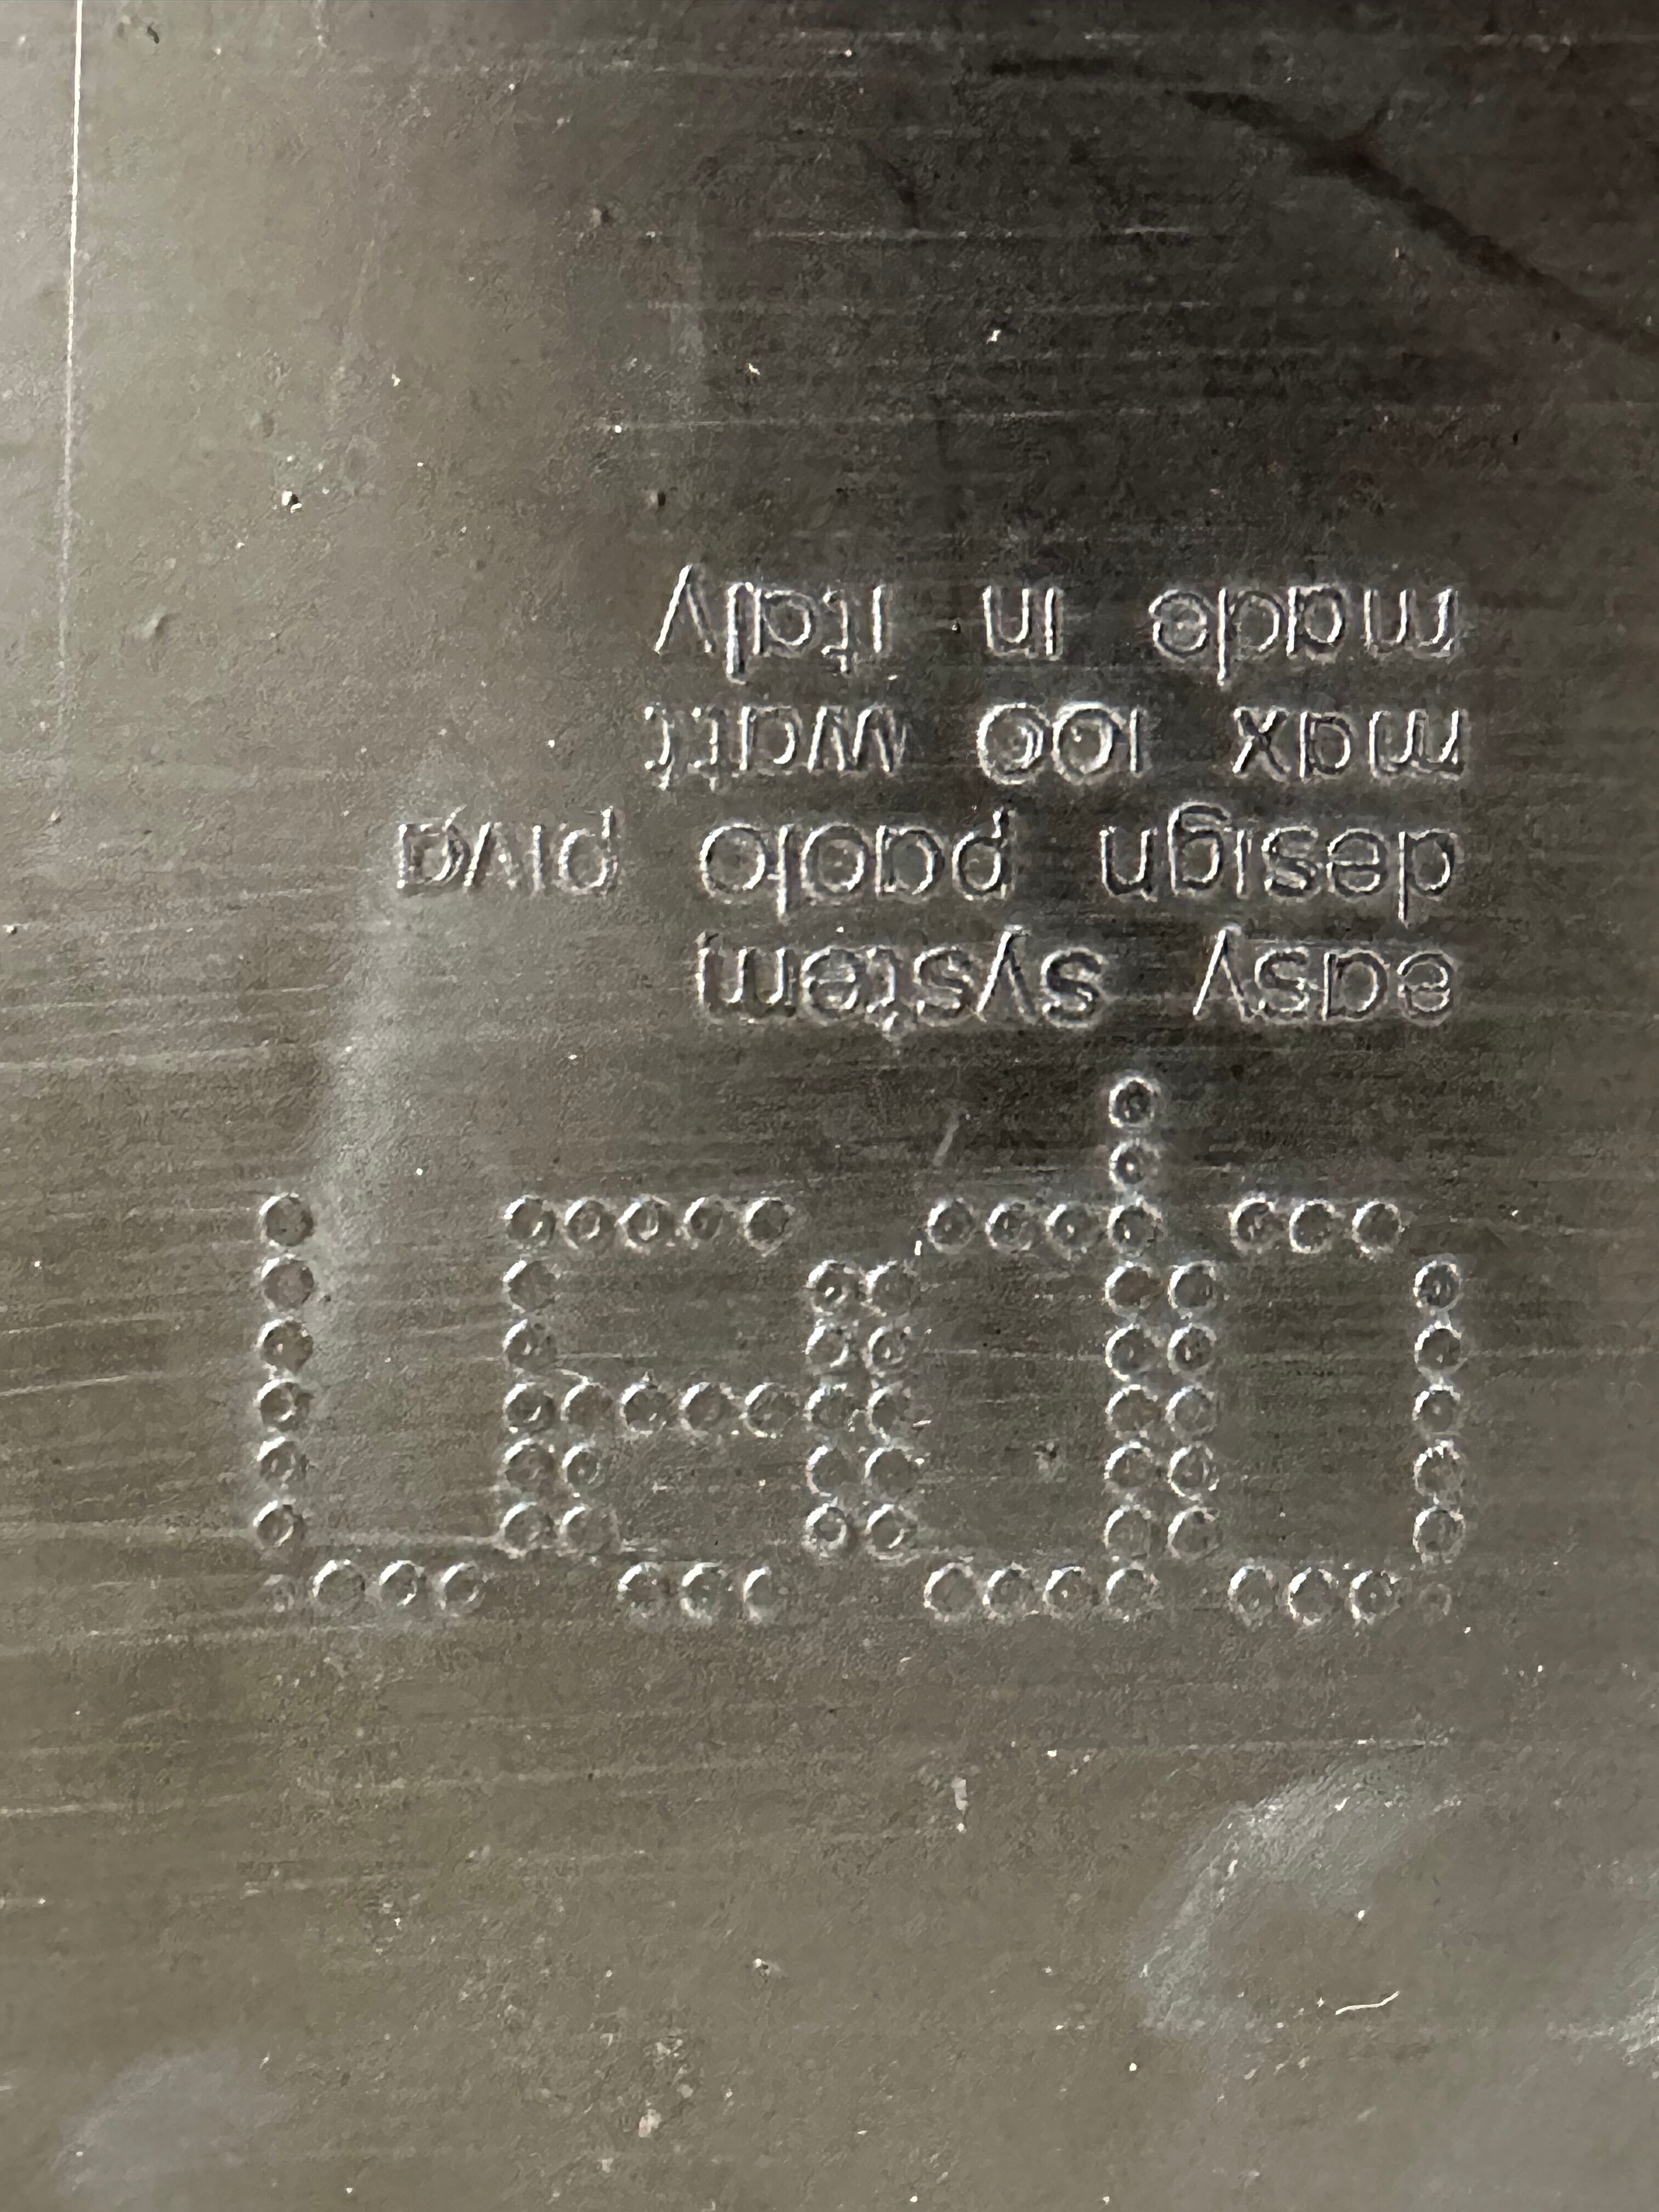 open
easy system
design paolo piva
max 100 watt
made in italy